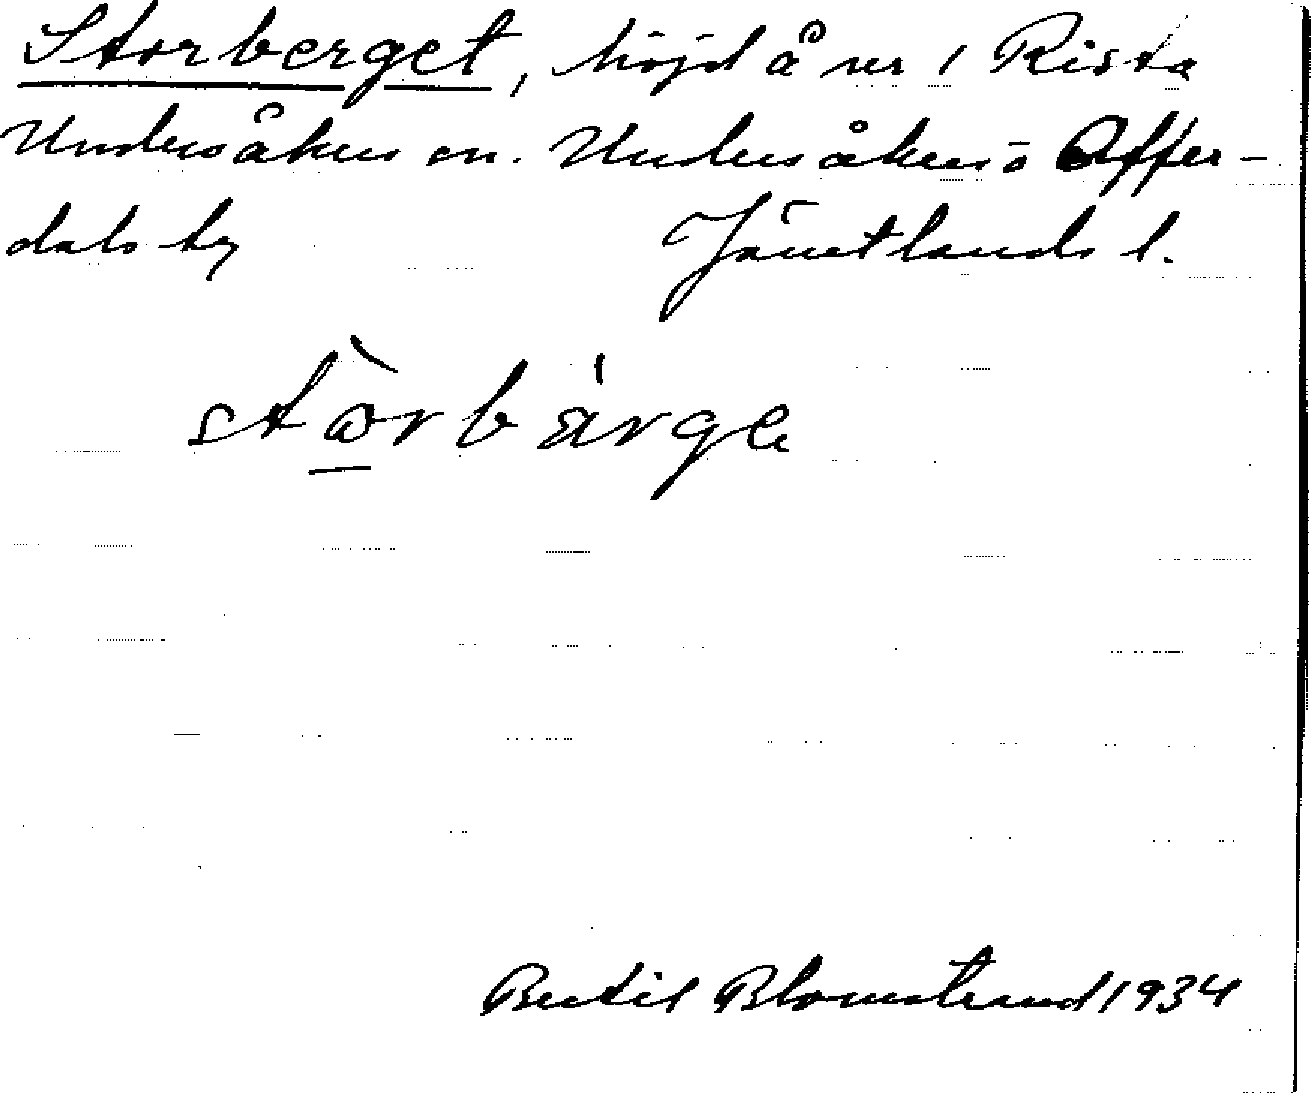 Storberget, höjd å ver 1 Rista
Undersåkers sn. Undersåkers o Offer-
dals tg Jämtlands l.
stòrbä́rge
Bertil Blomstrand 1934